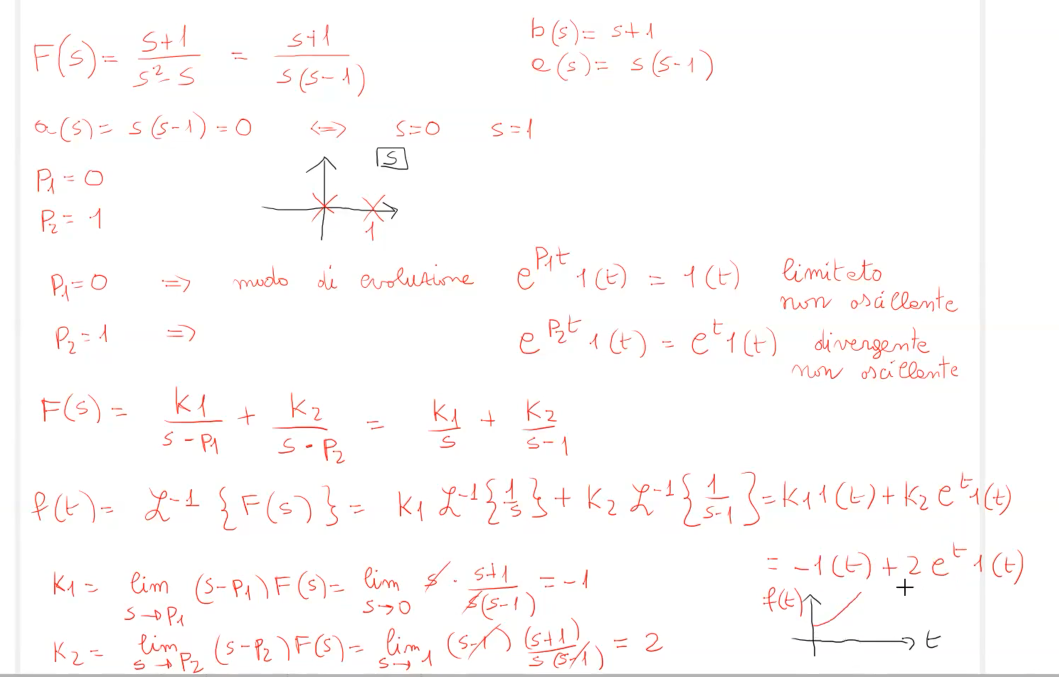 F(s) = (s+1)/(s²-s) = (s+1)/(s(s-1))
b(s) = s+1
a(s) = s(s-1)
a(s) = s(s-1) = 0 <=> s=0 s=1
s
P1 = 0
P2 = 1
1
P1=0 => modo di evoluzione e^(P1t) 1(t) = 1(t) limitato
non oscillante
P2=1 => e^(P2t) 1(t) = e^t 1(t) divergente
non oscillante
F(s) = K1/(s-P1) + K2/(s-P2) = K1/s + K2/(s-1)
f(t) = ℒ⁻¹{F(s)} = K1 ℒ⁻¹{1/s} + K2 ℒ⁻¹{1/(s-1)} = K1 1(t) + K2 e^t 1(t)
= -1(t) + 2 e^t 1(t)
K1 = lim s→P1 (s-P1) F(s) = lim s→0 s · (s+1)/(s(s-1)) = -1
f(t)
t
K2 = lim s→P2 (s-P2) F(s) = lim s→1 (s-1) (s+1)/(s(s-1)) = 2